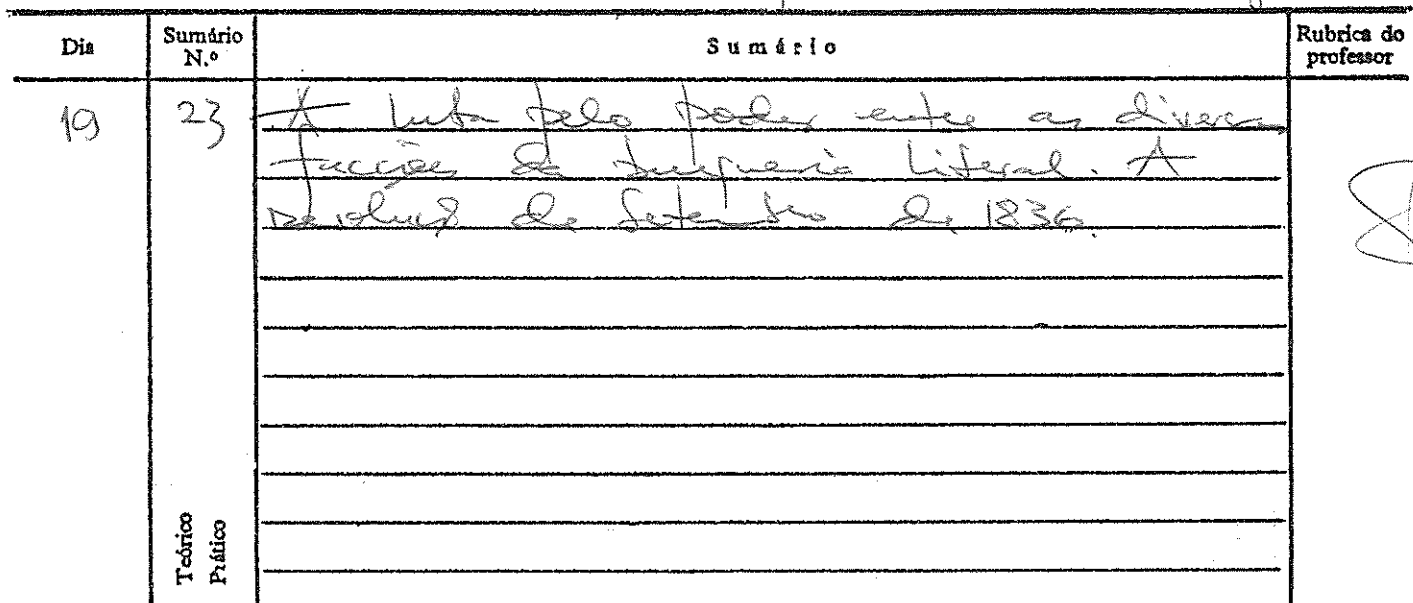 Dia
Sumário N.º
Sumário
Rubrica do professor
19
23
A luta pelo poder entre as diversas
facções da burguesia liberal. A
Revolução de Setembro de 1836.
Teórico
Prático